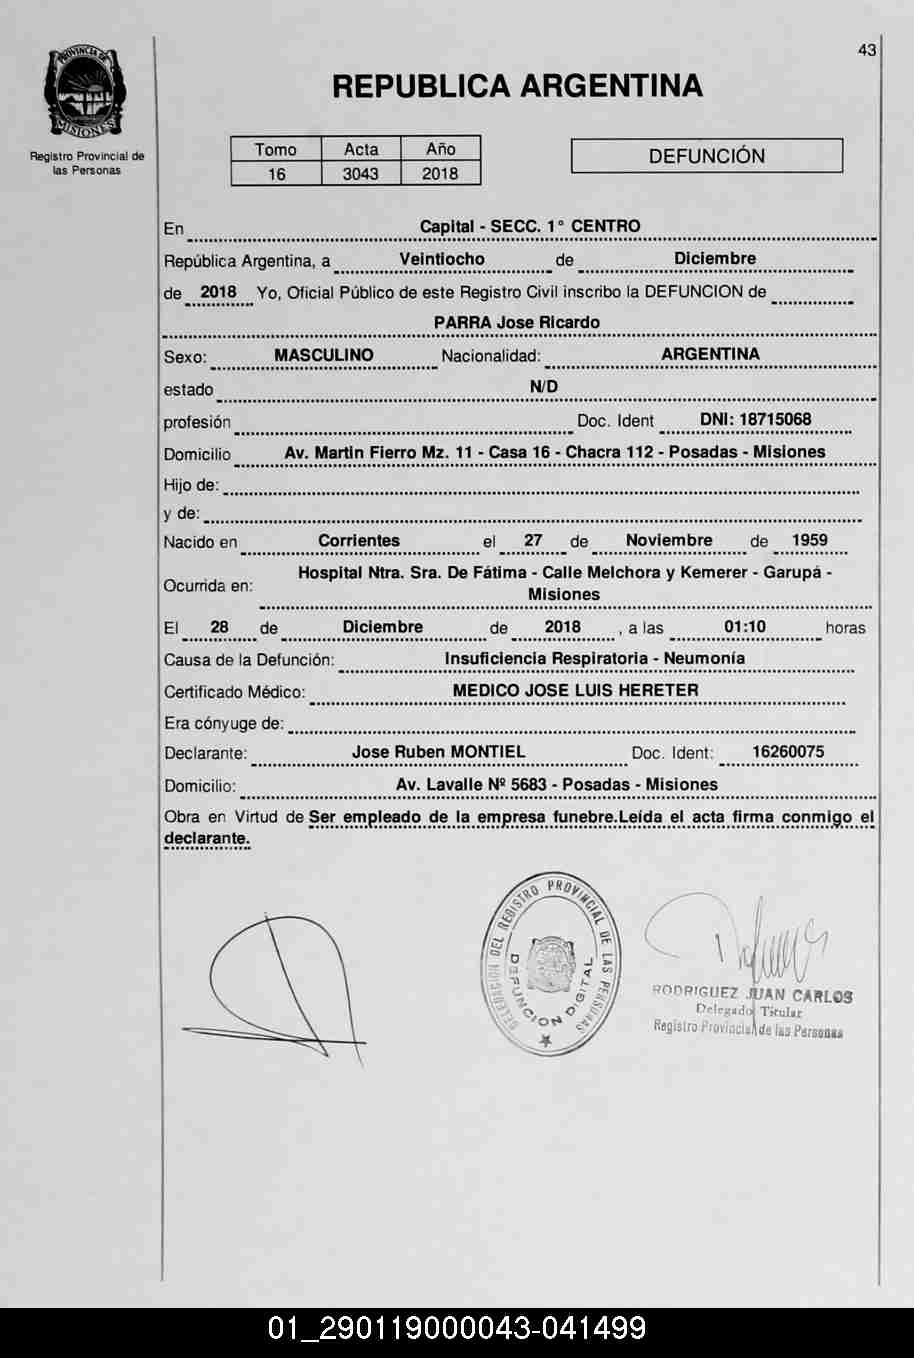 43
PROVINCIA DE
MISIONES
Registro Provincial de
las Personas
REPUBLICA ARGENTINA
Tomo Acta Año
16 3043 2018
DEFUNCIÓN
En Capital - SECC. 1° CENTRO
República Argentina, a Veintiocho de Diciembre
de 2018 Yo, Oficial Público de este Registro Civil inscribo la DEFUNCION de
PARRA Jose Ricardo
Sexo: MASCULINO Nacionalidad: ARGENTINA
estado N/D
profesión Doc. Ident DNI: 18715068
Domicilio Av. Martin Fierro Mz. 11 - Casa 16 - Chacra 112 - Posadas - Misiones
Hijo de:
y de:
Nacido en Corrientes el 27 de Noviembre de 1959
Ocurrida en: Hospital Ntra. Sra. De Fátima - Calle Melchora y Kemerer - Garupá -
Misiones
El 28 de Diciembre de 2018 , a las 01:10 horas
Causa de la Defunción: Insuficiencia Respiratoria - Neumonía
Certificado Médico: MEDICO JOSE LUIS HERETER
Era cónyuge de:
Declarante: Jose Ruben MONTIEL Doc. Ident: 16260075
Domicilio: Av. Lavalle Nº 5683 - Posadas - Misiones
Obra en Virtud de Ser empleado de la empresa funebre.Leída el acta firma conmigo el
declarante.
DELEGACION DEL REGISTRO PROVINCIAL DE LAS PERSONAS
DEFUNCION DIGITAL
RODRIGUEZ JUAN CARLOS
Delegado Titular
Registro Provincial de las Personas
01_290119000043-041499